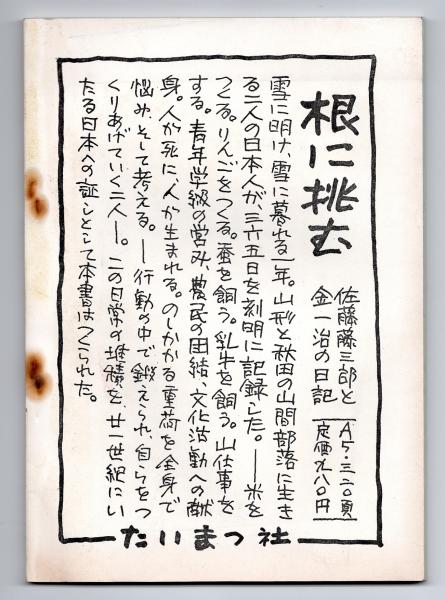 根に挑む
佐藤藤三郎と
金一治の日記
A5・三二〇頁
定価九八〇円
雪に明け、雪に暮れる一年。山形と秋田の山間部落に生き
る二人の日本人が、三六五日を刻明に記録した。―米を
つくる。りんごをつくる。蚕を飼う。乳牛を飼う。山仕事を
する。青年学級の営み、農民の団結、文化活動への献
身。人が死に、人が生まれる。のしかかる重荷を全身で
悩み、そして考える。―行動の中で鍛えられ、自らをつ
くりあげていく二人―。この日常の堆積を、廿一世紀にい
たる日本への証しとして本書はつくられた。
たいまつ社